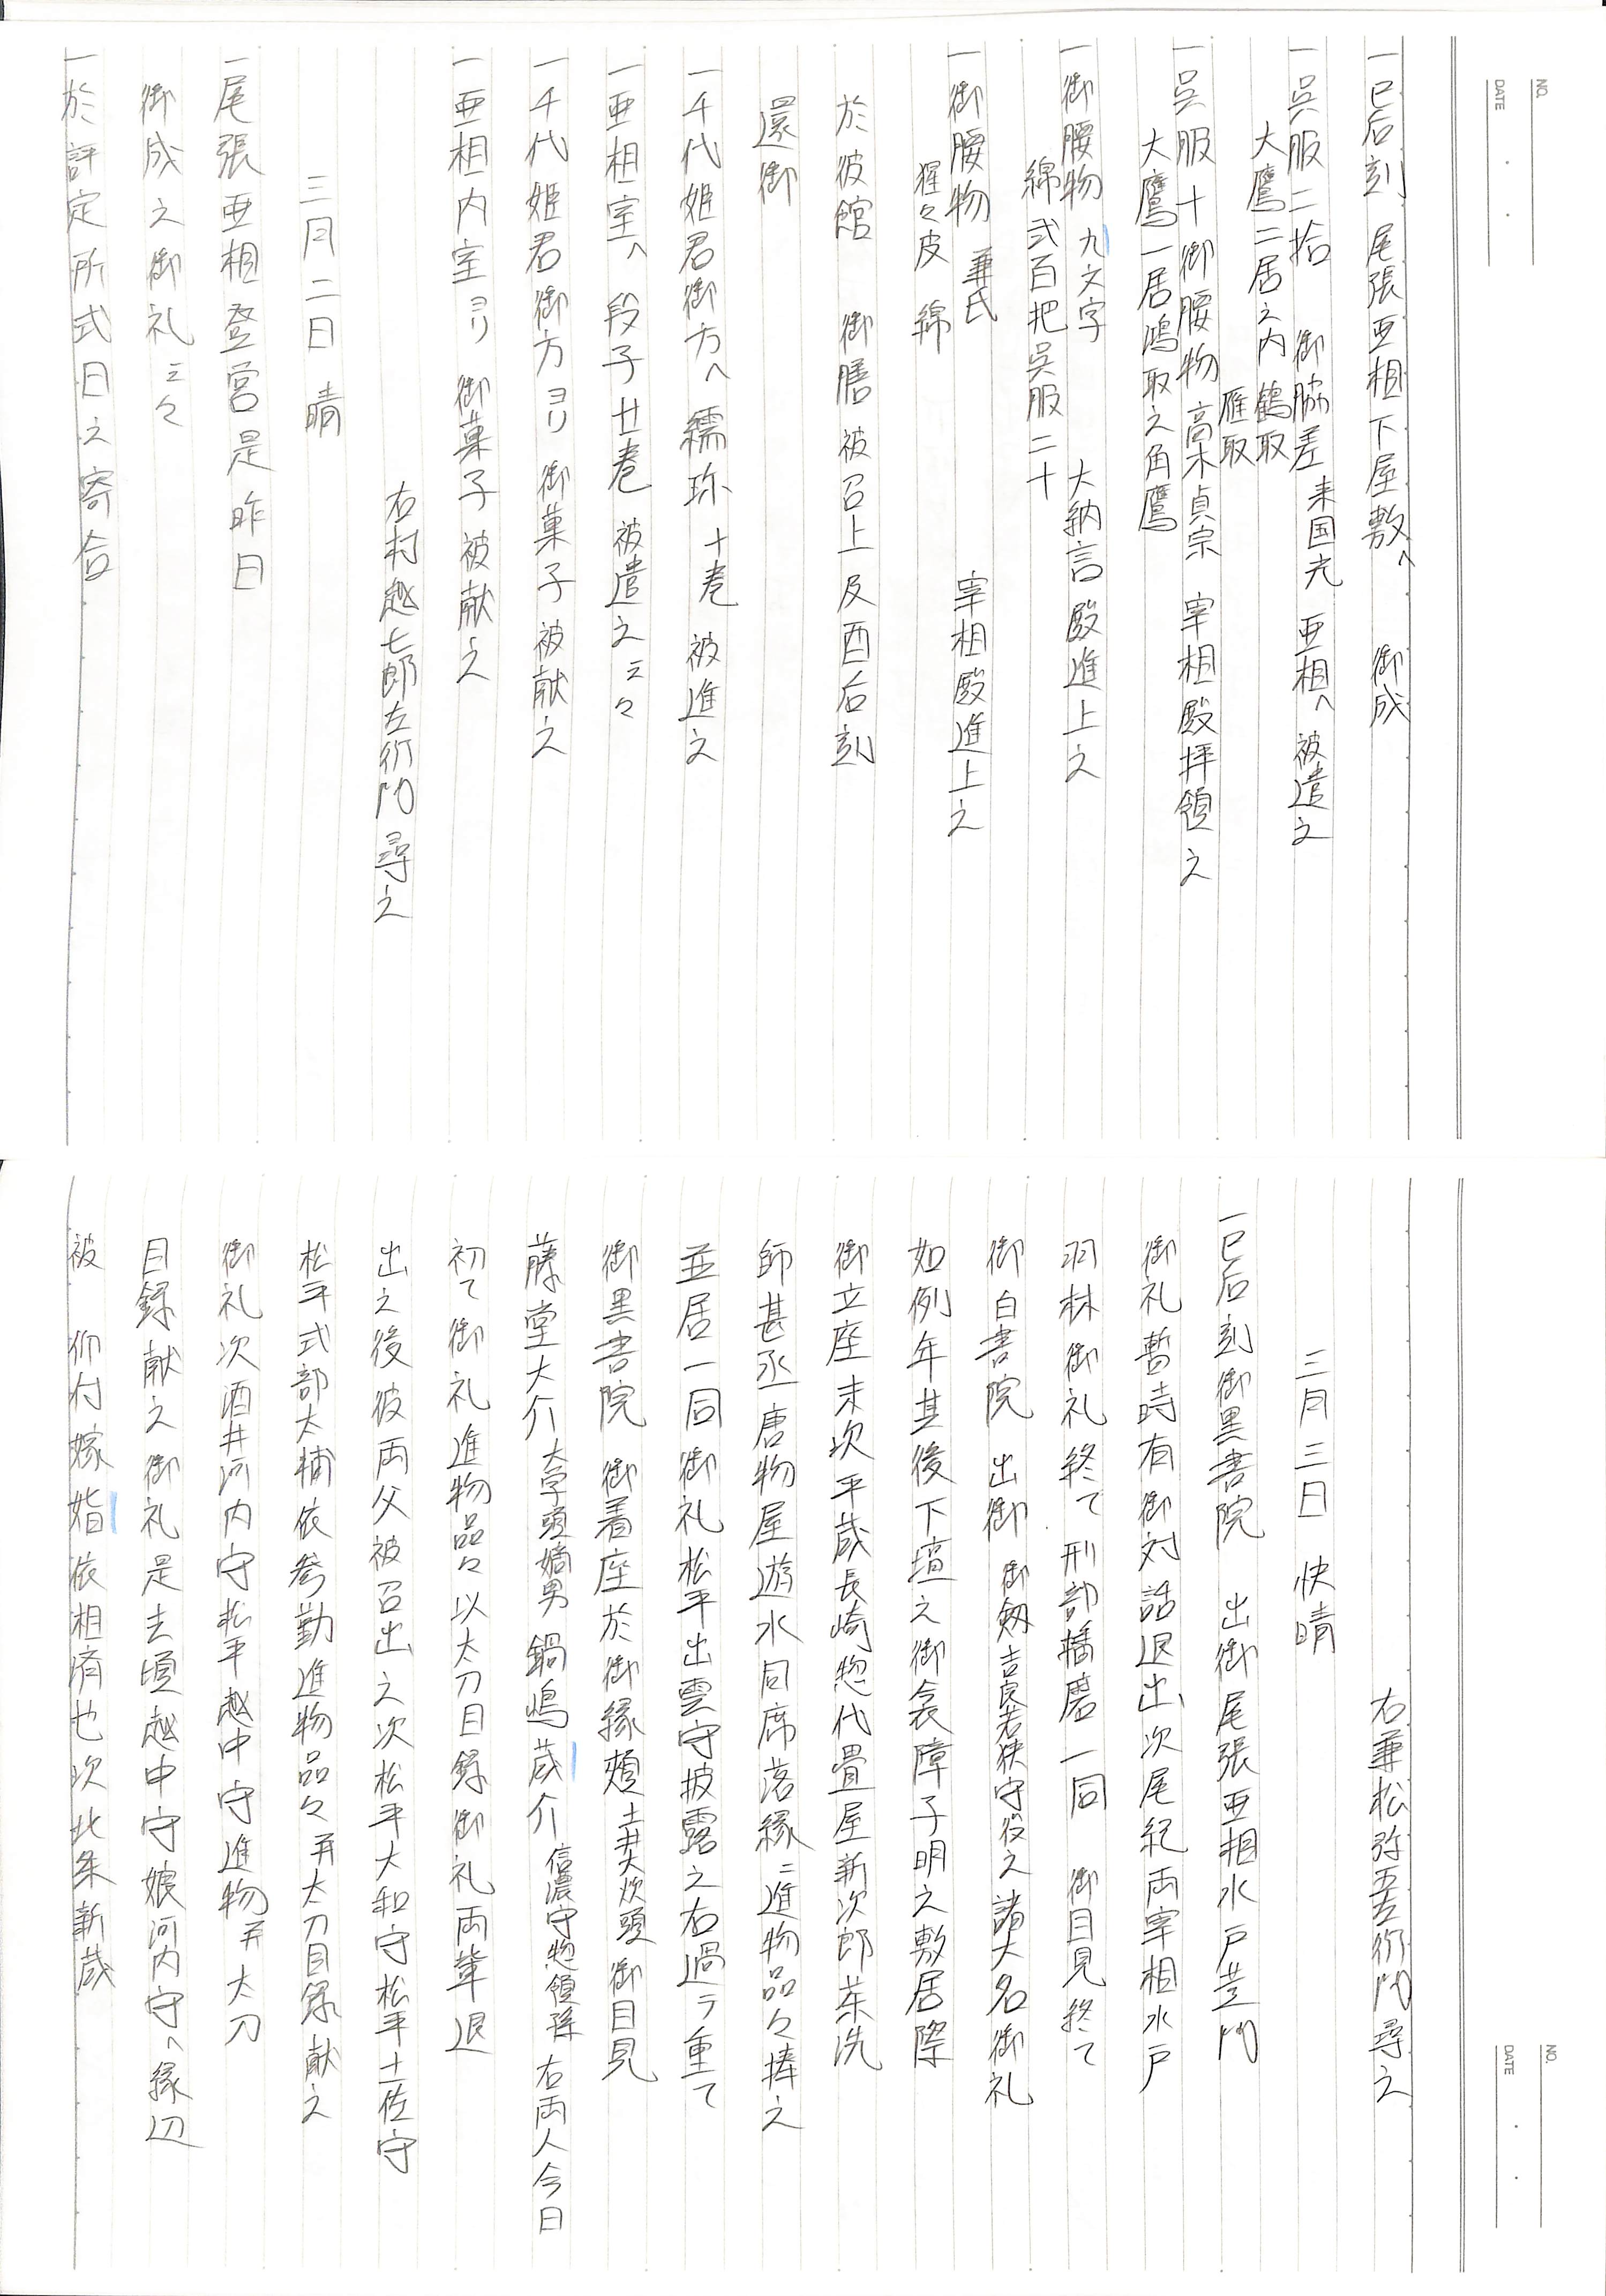 NO.
DATE
一巳后刻 尾張亜相下屋敷へ 御成
一呉服二拾 御脇差 来国光 亜相へ 被遣之
大鷹二居之内 鶴取
雁取
一呉服十御腰物 高木貞宗 宰相殿拝領之
大鷹一居鴻取之角鷹
一御腰物 九文字 大納言殿進上之
綿弐百把呉服二十
一御腰物 兼氏 宰相殿進上之
猩々皮 綿
於彼館 御膳被召上及酉后刻
還御
一千代姫君御方へ 繻珍 十巻 被進之
一亜相室へ 段子廿巻 被遣之云々
一千代姫君御方ヨリ 御菓子被献之
一亜相内室ヨリ 御菓子被献之
右村越七郎左衛門尋之
三月二日 晴
一尾張亜相登営是昨日
御成之御礼云々
一於評定所式日之寄合
NO.
DATE
右兼松弥五左衛門尋之
三月三日 快晴
一巳后刻御黒書院 出御尾張亜相水戸黄門
御礼暫時有御対話退出次尾紀両宰相水戸
羽林御礼終て刑部播磨一同 御目見終て
御白書院 出御 御剱吉良若狭守役之 諸大名御礼
如例年其後下壇之御襖障子明之敷居際
御立座末次平蔵長崎惣代畳屋新次郎茶洗
師甚丞唐物屋遊水同席落縁ニ進物品々捧之
並居一同御礼松平出雲守披露之右過テ重て
御黒書院 御着座於御縁頬 土井大炊頭 御目見
藤堂大介 大学頭嫡男 鍋嶋蔵介 信濃守惣領孫 右両人今日
初て御礼進物品々以太刀目録御礼両輩退
出之後彼両父被召出之次松平大和守松平土佐守
松平式部太輔依参勤進物品々并太刀目録献之
御礼次酒井河内守松平越中守進物并太刀
目録献之御礼是去頃越中守娘河内守へ縁辺
被 仰付嫁姻依相済也次北条新蔵